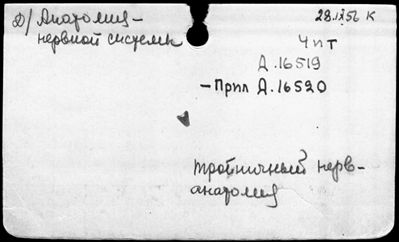 Д/ Анатомия-
нервной системы
28.IX56 К
Чит
Д.16519
-Прил Д.16520
тройничный нерв-
анатомия